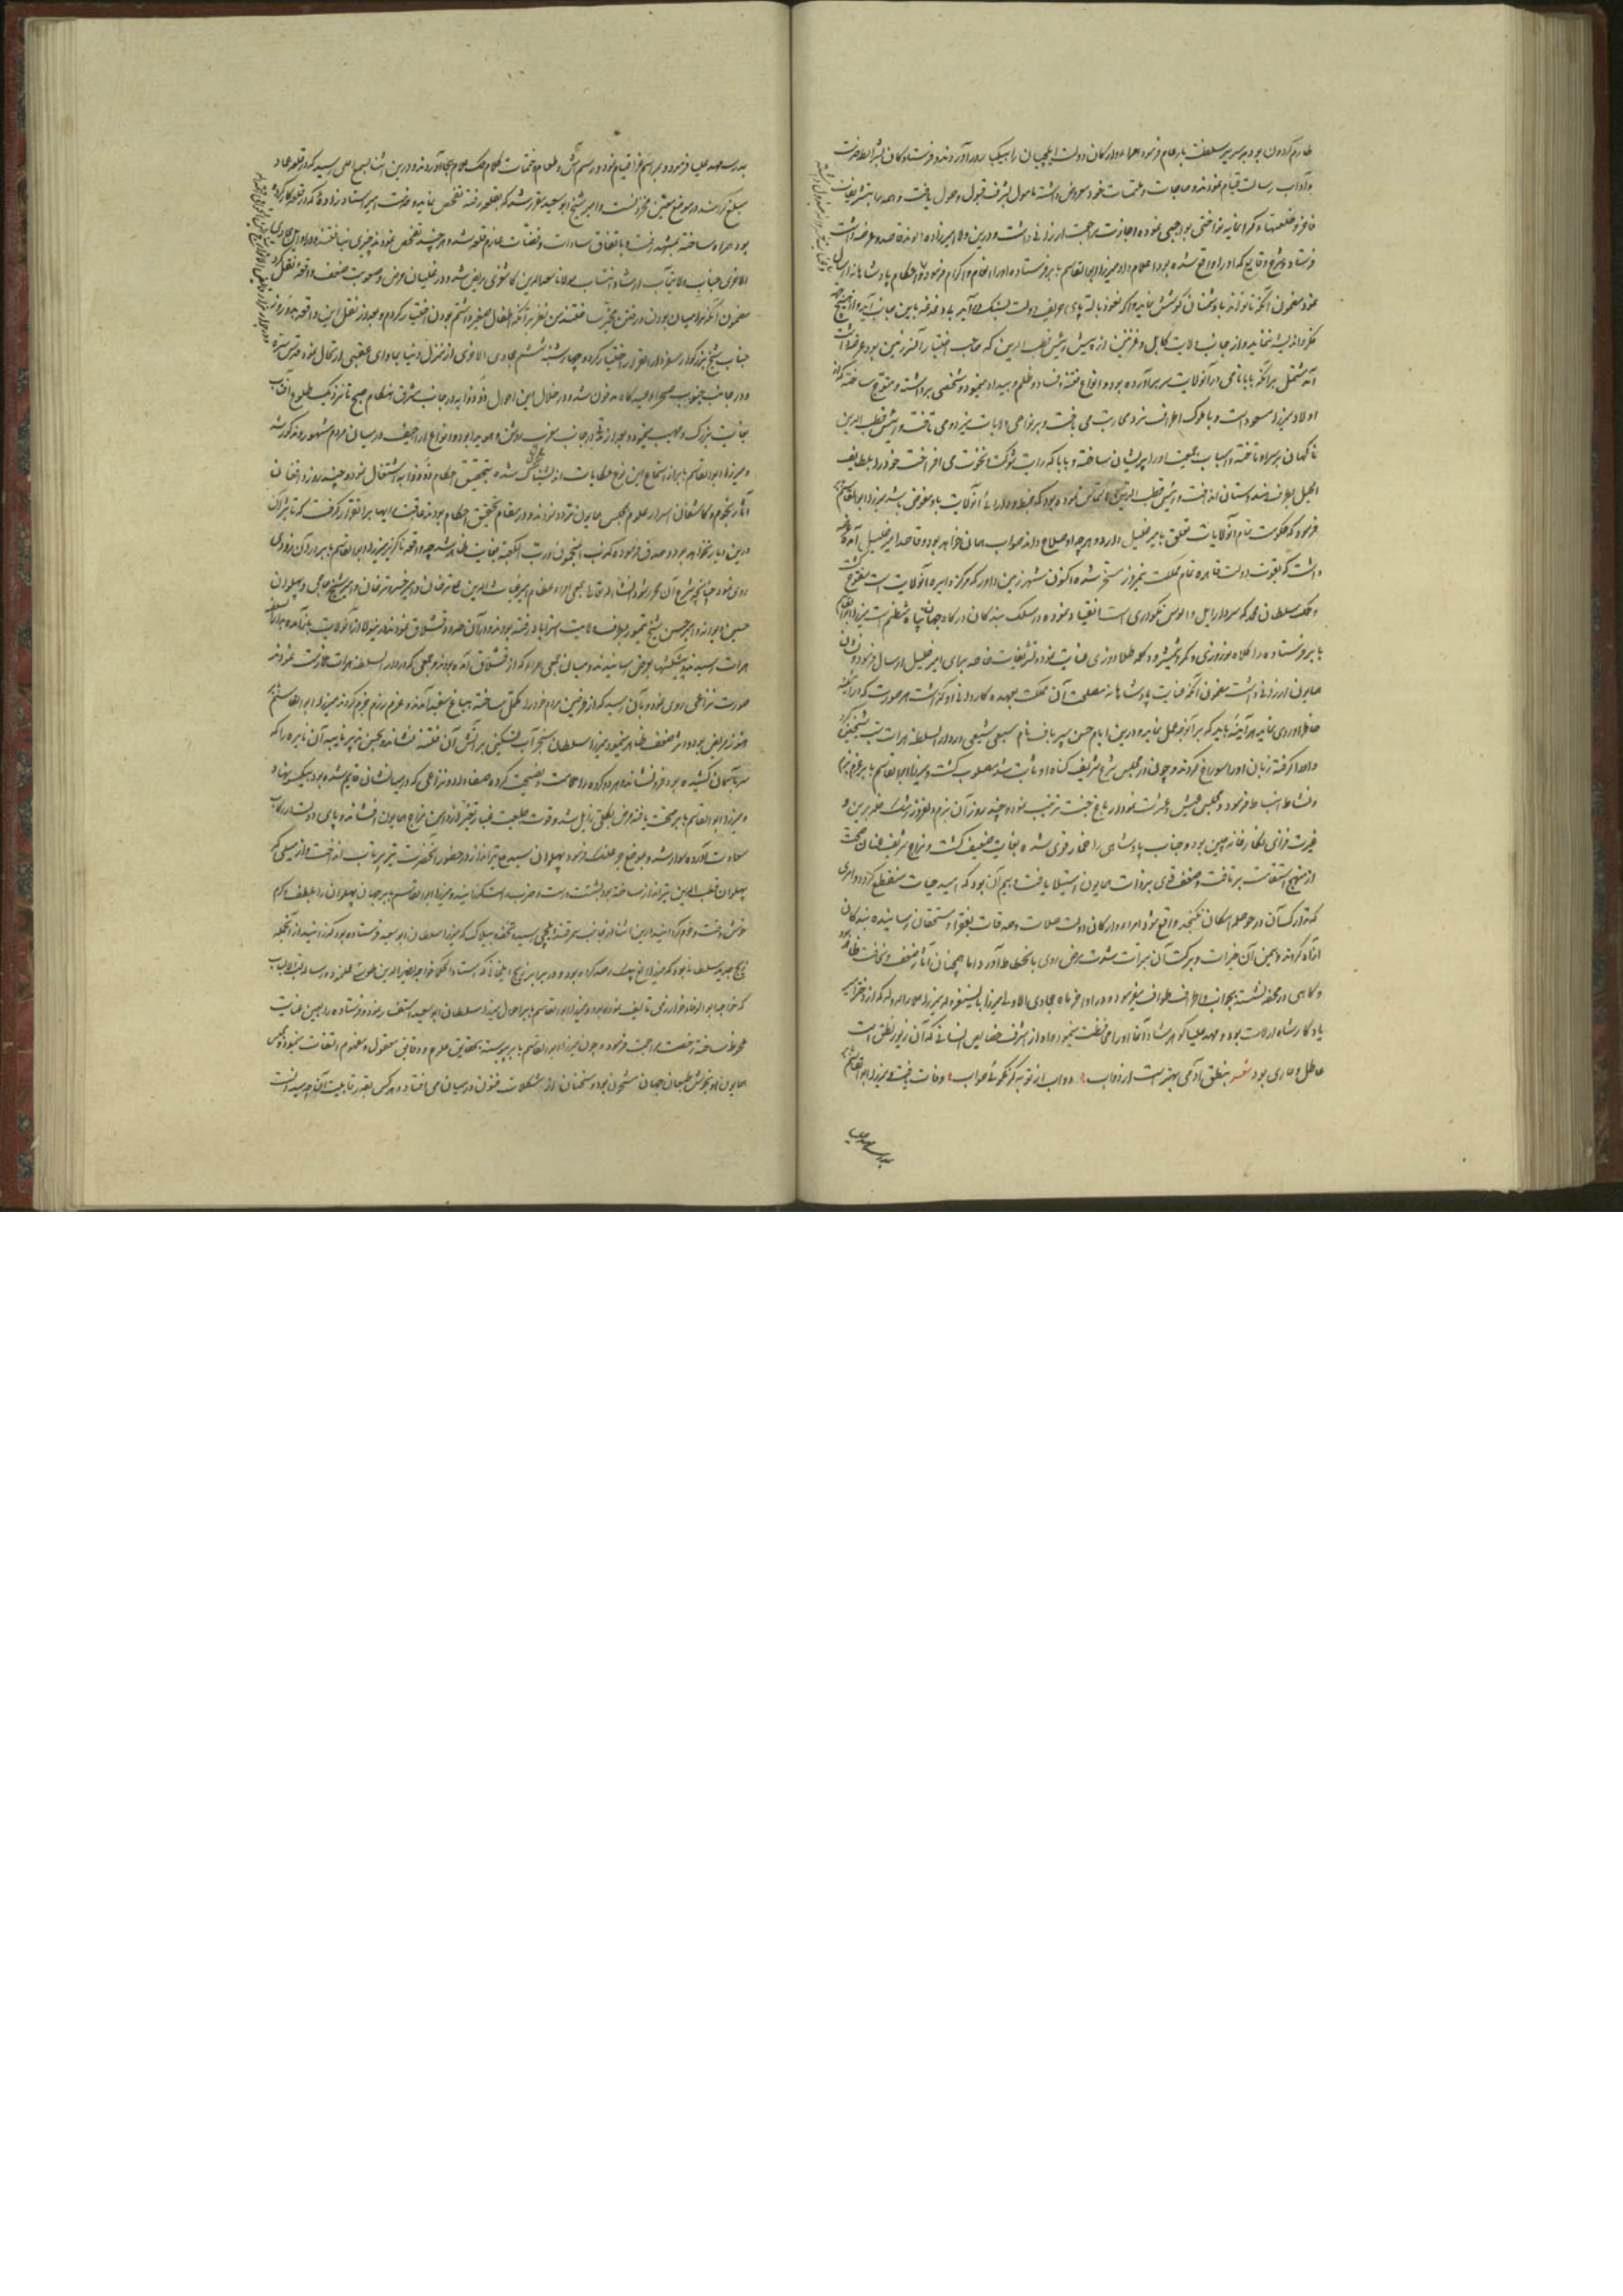 طارم گردون بود بر سریر سلطنت بار عام فرمود امراء و ارکان دولت ایلچیان را بیکبار در آوردند و فرستادگان بشرایط خدمت
و آداب رسالت قیام نمودند و حاجات و ملتمسات خود معروض داشته مامول بشرف قبول و حصول یافت و همه را بتشریفات
فاخر و خلعتهاء گرانمایه نواختی بواجبی نموده اجازت مراجعت ارزانی داشت و درین ولا امیرزاده الوند قاصد و عرضه داشت
فرستاد و شرح وقایع که او را واقع شده بود اعلام داد میرزا ابو القاسم بابر فرستاده او را انعام و اکرام فرمود و احکام پادشاهانه ارسال
نمود مضمون آنکه تا تواند با دشمنان کوشش نماید و اگر نعوذ بالله پای حریف دولت بسنگ در آید بی دغدغه باین جانب آید و از هیچ
مکر اندیشه ننماید و از جانب ولایت کابل و غزنین از پیش رئیس قطب الدین که صاحب اختیار آن سرزمین بود عرضه داشت
آمد مشتمل بر آنکه بابا نامی در آن ولایت سر بر آورده بود و انواع فتنه و فساد و ظلم و بیداد مینمود و شخصی برداشته و متوج ساخته که از
اولاد میرزا مسعود است و با ملوک اطراف نزدی می باخت و بر نواحی ولایات نیز دومی تاخت و رئیس قطب الدین
ناگهان بر سر او تاخته و اسباب جمعیت او را پریشان ساخته و بابا که رایت شوکت و نخوت می افراخت خود را بلطایف
الحیل بطرف هندوستان انداخت و رئیس قطب الدین التماس نموده بود که ضبط و دارائی آن ولایت باو مفوض باشد میرزا ابو القاسم بابر
فرمود که حکومت تمام آن ولایات تعلق بامیر خلیل دارد و هر چه او صلاح داند صواب همان خواهد بود و قاصد امیر خلیل آمده عرضه
داشت که بقوت دولت قاهره تمام مملکت نیمروز مسخر شده اکنون شهر زمین داور که مرکز دایره آن ولایت است مفتوح گشت
و ملک سلطان محمد که سردار ایل و الوس نکودری است انقیاد نموده در سلک بندگان درگاه جهان پناه منتظم است میرزا ابو القاسم
بابر فرستاده را کلاه نوروزی و کمر و شمشیر و دگله طلا دوزی عنایت نمود و تشریفات خاصه برای امیر خلیل ارسال فرمود و نشان
همایون ارزانی داشت مضمون آنکه عنایت پادشاهانه مصلحت آن مملکت بعهده کاردانی او گذاشت هر صورت که در آینه
خاطر او روی نماید هر آینه باید که بر آنوجه عمل نماید و درین ایام حسن پیرباف نام سبعی شیعی در دار السلطنه هرات سب شیخین کرد
و او را گرفته زبان او را سوراخ کردند و چون در مجلس شرع شریف گناه او ثابت شد مصلوب گشت و میرزا ابو القاسم بابر عزم بزم
و نشاط انبساط فرمود و مجلس عیش و عشرت نمودار باغ جنت ترتیب نمود و چند روز آن بزم دلفروز رشک خلد برین و
غیرت فزای نگارخانه چین بود و جناب پادشاهی را خمار قوی شده بغایت ضعیف گشت و مزاج شریف عنان صحت
از منهج استقامت بر تافت و ضعف قوی بر ذات همایون استیلا یافت و بیم آن بود که امید حیات منقطع گردد و امری
که تدارک آن در حوصله امکان نگنجد واقع شود امراء و ارکان دولت صلات و صدقات بفقراء و مستحقان رسانیده بندگان
آزاد کردند و بیمن آن خیرات و برکت آن مبرات شدت مرض روی بانحطاط آورد اما همچنان آثار ضعف و نحافت ظاهر بود
و گاهی در محفه نشسته بجوانب و اطراف طواف میفرمود و در اواخر ماه جمادی الاولی میرزا بایسنغر ولد میرزا علاء الدوله که از دختر امیر
یادگار شاه ارلات بود و مهد علیا گوهرشاد آغا او را محافظت مینمود و او از اشرف خصایص انسانی که آن زیور نطق است
عاطل و عاری بود شعر بنطق آدمی بهتر است از دواب ؛ دواب از تو به گر نگوئی صواب ؛ وفات یافت و میرزا ابو القاسم بابر
بمدرسه مهد علیا
بمدرسه مهد علیا فرمود و بمراسم عزا قیام نمود و رسم آش و طعام و ختمات کلام ملک علام بجا آوردند و درین اثنا بسمع اعلی رسید که در قلعه عماد
مبلغ گرامند در موضع معین مخزونست و امیر شیخ ابو سعید مقرر شد که بقلعه رفته تفحص نماید و خدمت امیر استاد زاده که در قلعه کارکرده
بود همراه ساخته بمشهد رفت و باتفاق سادات و قضات عازم قلعه شد و هر چند تفحص نمودند چیزی نیافتند و در اوایل جمادی
الاخری جناب ولایت مآب ارشاد انتساب مولانا سعد الدین کاشغری مریض شد و در غلیان مرض و صعوبت ضعف واقعه نقل کرد
مضمون آنکه مرا میان بودن و رفتن مخیر ساختند من نظر بر آنکه اطفال صغیر داشتم بودن اختیار کردم و بعد از نقل این واقعه بدو روز
جناب شیخ بزرگوار سفر دار القرار اختیار کرده چهارشنبه ششم جمادی الاخری از منزل دنیا بماوای عقبی ارتحال نمود قدس سره
و در جانب جنوب صحراء عیدگاه مدفون شد و در خلال این احوال ذو ذوابه در جانب مشرق هنگام صبح تا نزدیک طلوع آفتاب
بغایت بزرگ و مهیب مینمود و بعد از مدتی در جانب مغرب روشن و هویدا بود و انواع اراجیف در میان مردم مشهور و مذکور شد
و میرزا ابو القاسم بابر از استماع این نوع حکایات اندیشناک شده بتحقیق احکام ذو ذوابه اشتغال نمود و چند روز واقفان
آثار نجوم و کاشفان اسرار علوم بمجلس همایون تردد نمودند و در مقام تحقیق احکام بودند عاقبت رایها بر آن قرار گرفت که تاثیر آن
درین دیار نخواهد بود و صدق فرموده کذب المنجمون و رب الکعبه بغایت ظاهر شد چه واقعه ناگزیر میرزا ابو القاسم بابر در آن زودی
روی نمود چنانچه شرح آن محرر شود انشاء الله تعالی جمعی امراء عظام امیر غیاث الدین علی ترخان و امیر خسرو ترخان و امیر شیخ حاجی و پهلوان
حسین دیوانه و امیر حسن شیخ تیمور بطرف ولایت استراباد رفته بودند و در آن حدود قشلاق نمودند درینولا از آن ولایت باز آمده بدار السلطنه
هرات رسیدند و پیشکشها بعرض رسانیدند و میان جمعی امراء که از قشلاق آمده بودند و جمعی که در دار السلطنه هرات ملازمت نمودند
صورت نزاعی روی نمود و بآن رسید که از طرفین مردم خود را مکمل ساخته بباغ سفید آمدند و عزم رزم جزم کردند میرزا ابو القاسم بابر
هنوز مریض بود و اثر ضعف ظاهر مینمود میرزا سلطان سنجر آب تسکینی بر آتش آن فتنه فشاند و بحسن تدبیر نایره آن نایره را که
سر بآسمان کشیده بود فرو نشاند و هر دو گروه را ملامت و نصیحت کرده صفا داد و نزاعی که در میانشان قایم شده بود بیکسو نهاد
و میرزا ابو القاسم بابر صحت یافته مرض بکلی زایل شد و قوت طبیعت غبار تغیر از دامن مزاج همایون افشاند و پای دولت در رکاب
سعادت آورده سوار شد و بموضع چرغلنگ فرمود پهلوان سعید تیرانداز در حضور آنحضرت تیر پرتاب انداخت و از میلی که
پهلوان قطب الدین تیرانداز ساخته بود بشست درست و ضرب دست گذرانید و میرزا ابو القاسم بابر جهان پهلوان را بلطف و کرم
خوش وقت و خرم گردانید درین اثنا از جانب سمرقند ایلچی رسید و تحفه و بیلاک که میرزا سلطان ابو سعید فرستاده بود گذرانید از آنجمله
زیج جدید سلطانی بود که میرزا الغ بیک رصد کرده بود و در برابر زیج ایلخانی که استاد الحکما خواجه نصیر الدین طوسی علیه
که خواجه ابو الوفاء خوارزمی تالیف نموده بود و میرزا ابو القاسم بابر احوال میرزا سلطان ابو سعید استفسار نمود و فرستاده را بعین عنایت
ملحوظ ساخته رخصت مراجعت فرمود و چون میرزا ابو القاسم بابر پیوسته بحقایق علوم و دقایق معقول و مفهوم التفات مینمود و مجلس
همایون او بخوش طبعان جهان مشحون بود و سخنان از مشکلات فنون در میان می افتاد و هر کس بقدر قابلیت آنچه میدانست